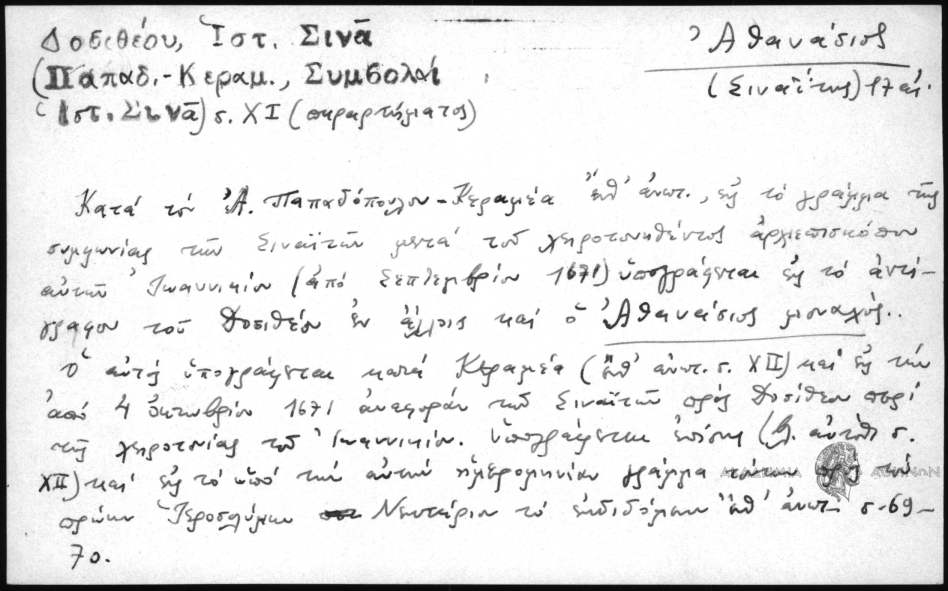 Δοσιθέου, Ἱστ. Σινᾶ
Ἀθανάσιος
(Παπαδ.-Κεραμ., Συμβολαί
(Σιναΐτης) 17 αἰ.
Ἱστ. Σινᾶ) σ. XI (παραρτήματος)
Κατά τόν Ἀ. Παπαδόπουλον-Κεραμέα ἔνθ' ἀνωτ., εἰς τό γράμμα τῆς
συμφωνίας τῶν Σιναϊτῶν μετά τοῦ χειροτονηθέντος ἀρχιεπισκόπου
αὐτῶν Ἰωαννικίου (ἀπό Σεπτεμβρίου 1671) ὑπογράφεται εἰς τό ἀντί-
γραφον τοῦ Δοσιθέου ἐν ἄλλοις καί ὁ Ἀθανάσιος μοναχός.
Ὁ αὐτός ὑπογράφεται κατά Κεραμέα (ἔνθ' ἀνωτ. σ. XII) καί εἰς τήν
ἀπό 4 Ὀκτωβρίου 1671 ἀναφοράν τῶν Σιναϊτῶν πρός Δοσίθεον περί
τῆς χειροτονίας τοῦ Ἰωαννικίου. Ὑπογράφεται ἐπίσης (β. αὐτόθι σ.
XII) καί εἰς τό ὑπό τήν αὐτήν ἡμερομηνίαν γράμμα τούτων πρός τόν
πρώην Ἱεροσολύμων Νεκτάριον τό ἐκδιδόμενον ἔνθ' ἀνωτ. σ. 69-
70.
ΑΚΑΔΗΜΙΑ ΑΘΗΝΩΝ